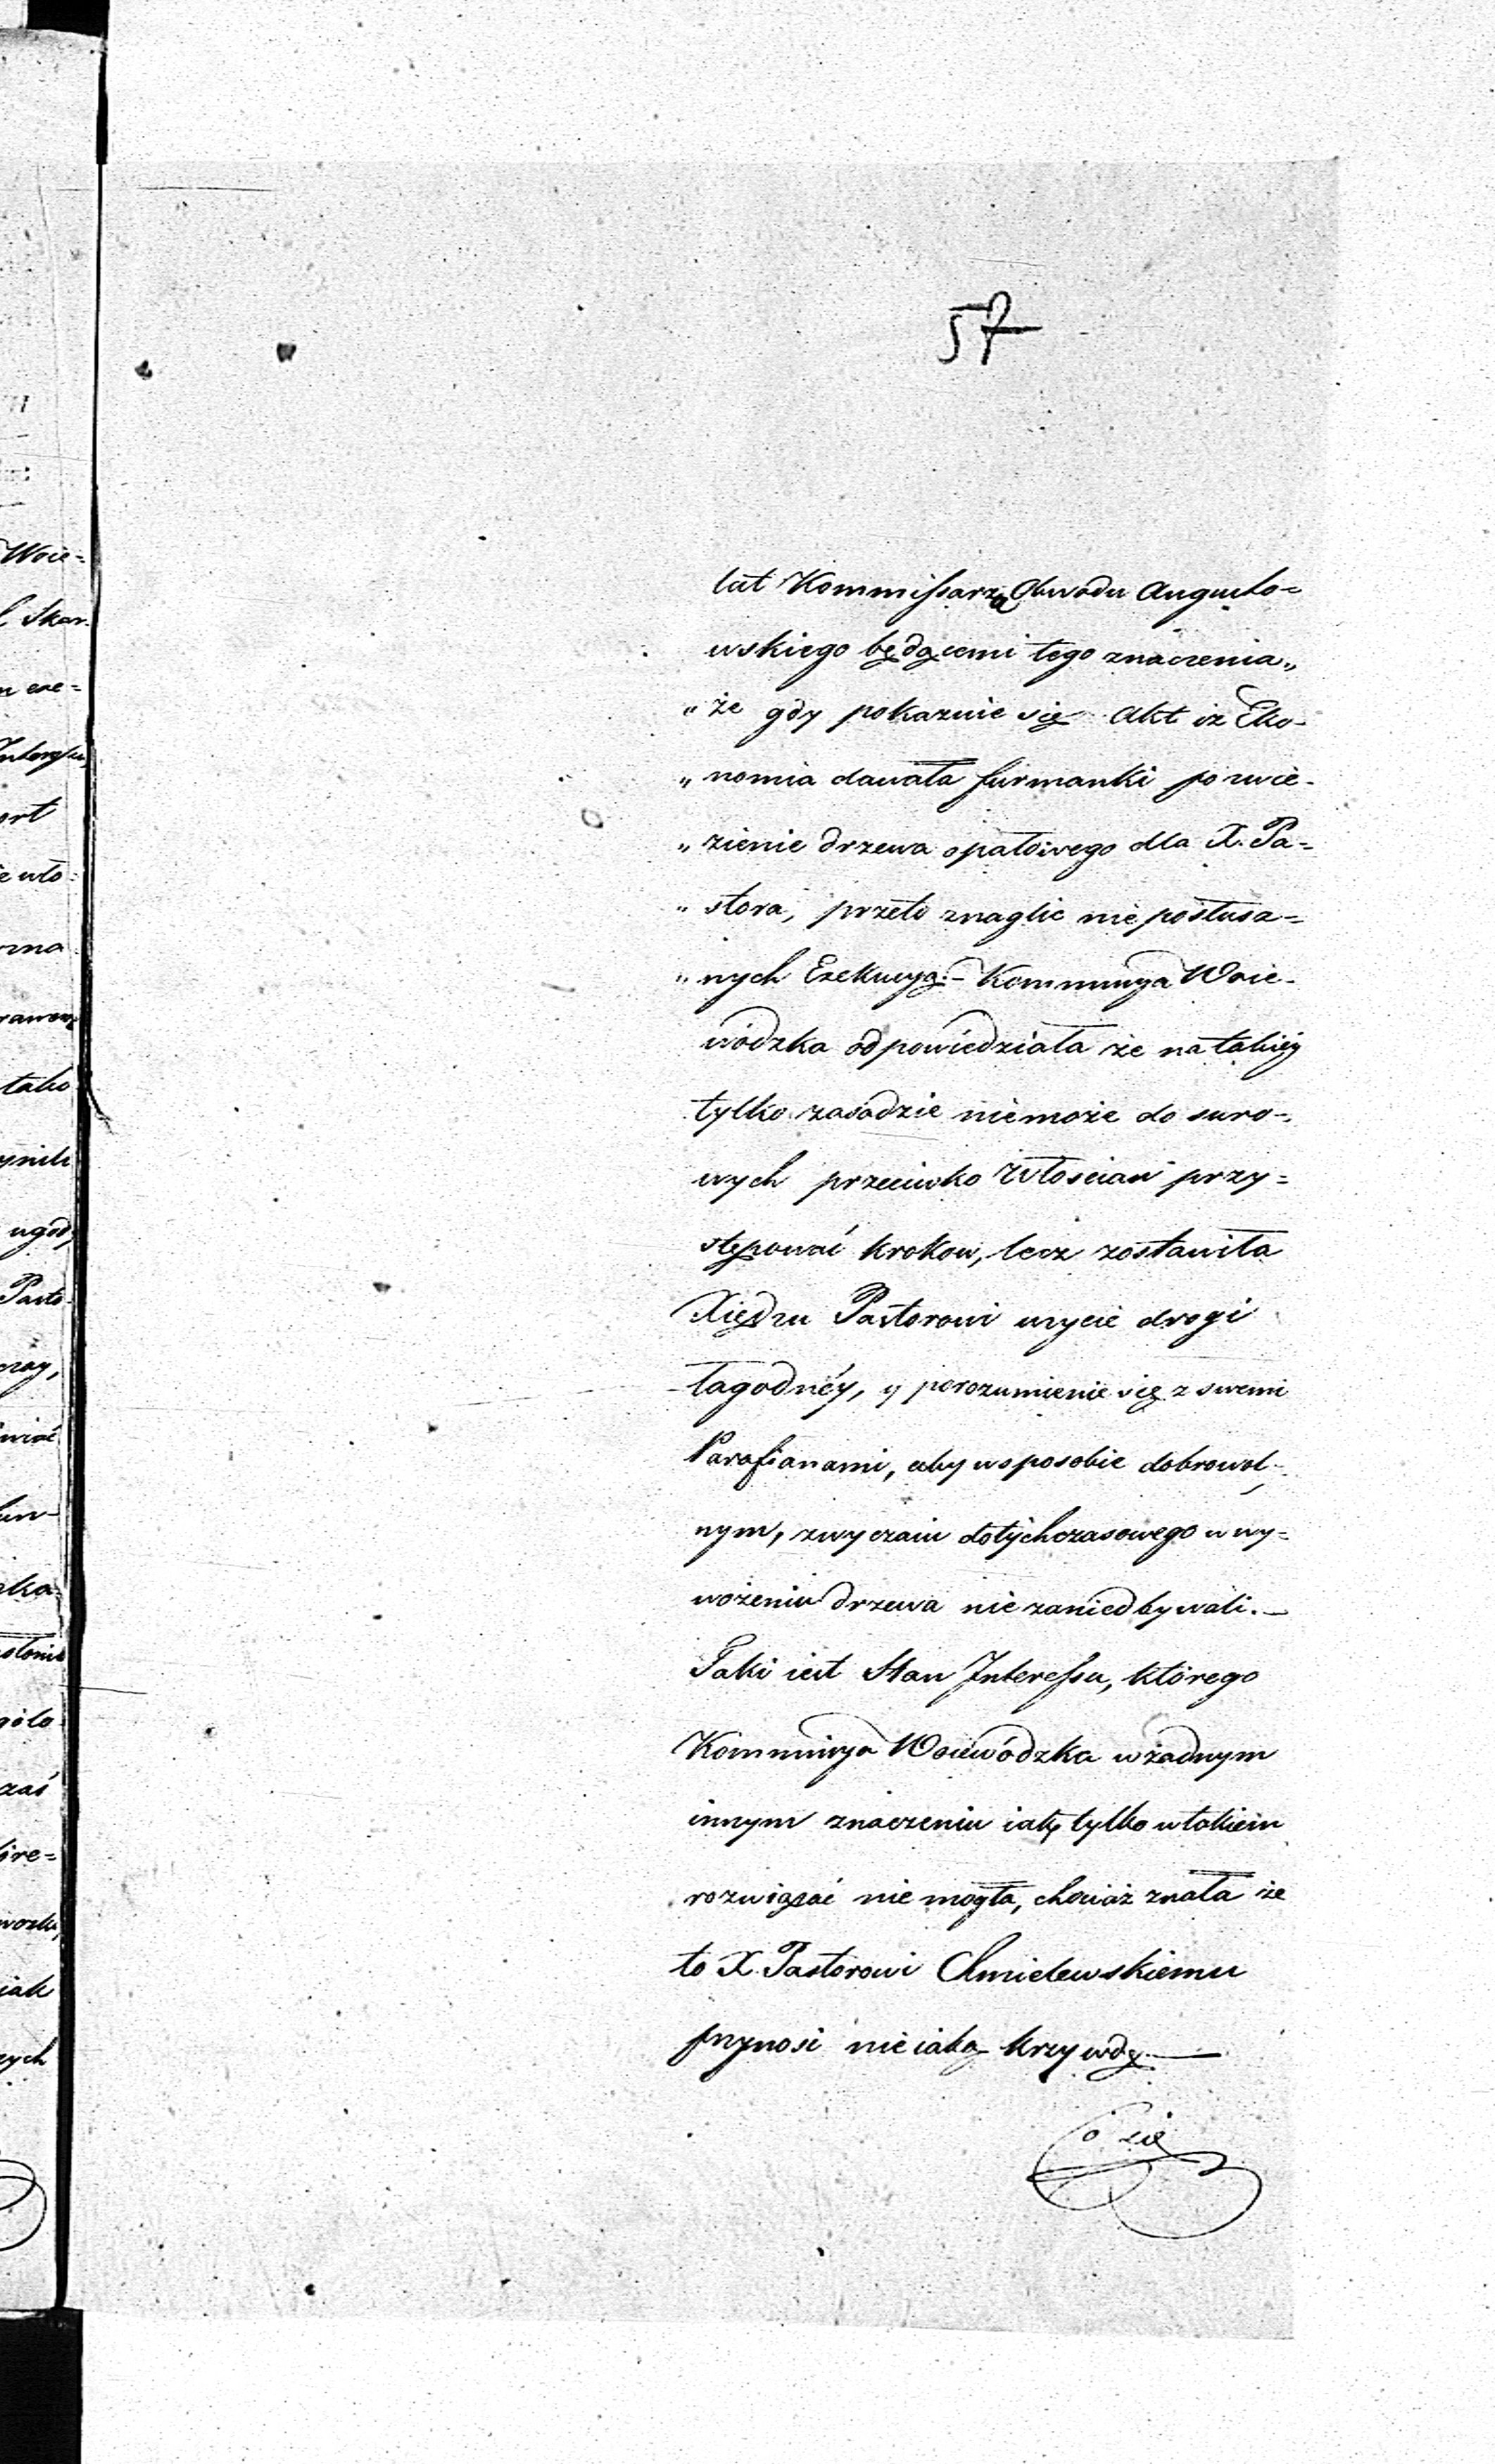 57
lat Kommissarza Obwodu Augusto=
wskiego będącemi tego znaczenia„
„ że gdy pokazuie się Akt iż Eko-
„ nomia dawała furmanki po zwie-
„ zienie drzewa opałowego dla X. Pa=
„ stora, przeto znaglić nieposłusz-
„ nych Exekucyą.- Kommissya Woie-
wódzka odpowiedziała że na takiéy
tylko zasadzie niemoże do suro-
wych przeciwko Włościan przy=
stępować krokow, lecz zostawiła
Xiędzu Pastorowi użycie drogi
łagodnéy, y porozumienie się z swemi
Parafianami, aby w sposobie dobrowol-
nym, zwyczaiu dotychczasowego w wy=
wożeniu drzewa nie zaniedbywali.—
Taki iest Stan Interessu, którego
Kommissya Woiewódzka w żadnym
innym znaczeniu iak tylko w takiem
rozwiązać nie mogła, chociaż znała że
to X. Pastorowi Chmielewskiemu
przynosi nieiaką krzywdę.—
Co się